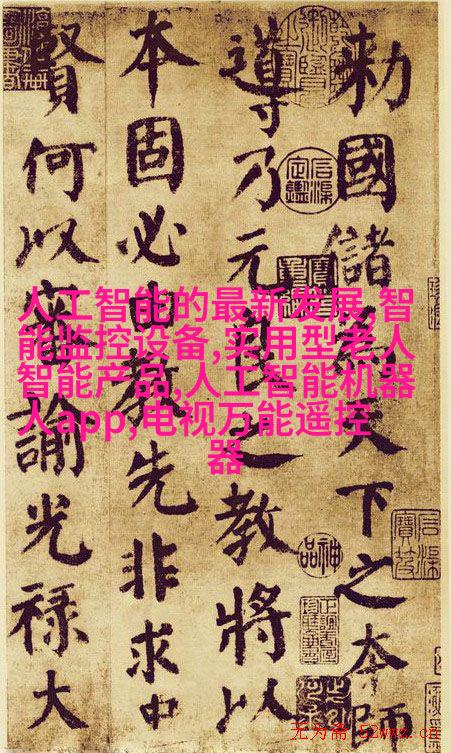 勑國儲為天下之本師
導乃元良之教將以
本固必由教先非求中
賢何以審諭光祿大
人工智能的最新发展,智
能监控设备,实用型老人
智能产品,人工智能机器
人app,电视万能遥控
器
神品
无为斋 52wwz.cn